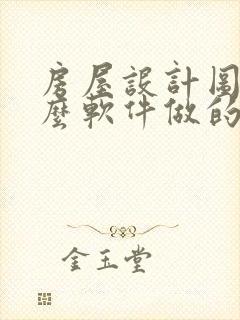 房屋設計圖
麼軟件做的
金玉堂